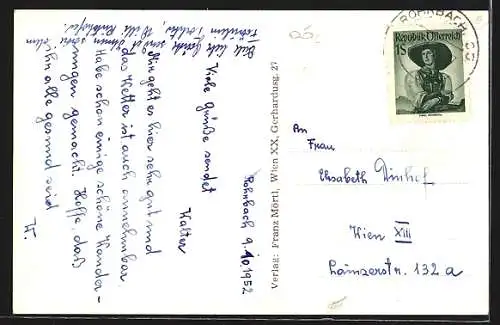 Rohrbach 9.10.1952
Viele Grüße sendet
Walter
Mir geht es hier sehr gut und
das Wetter ist auch annehmbar.
Habe schon einige schöne Wander-
ungen gemacht. Hoffe, daß
ihr alle gesund seid
W.
Verlag: Franz Mörtl, Wien XX, Gerhardusg. 27
ROHRBACH
Republik Österreich
1S
An
Frau
Elisabeth
Wien XIII
Lainzerstr. 132 a